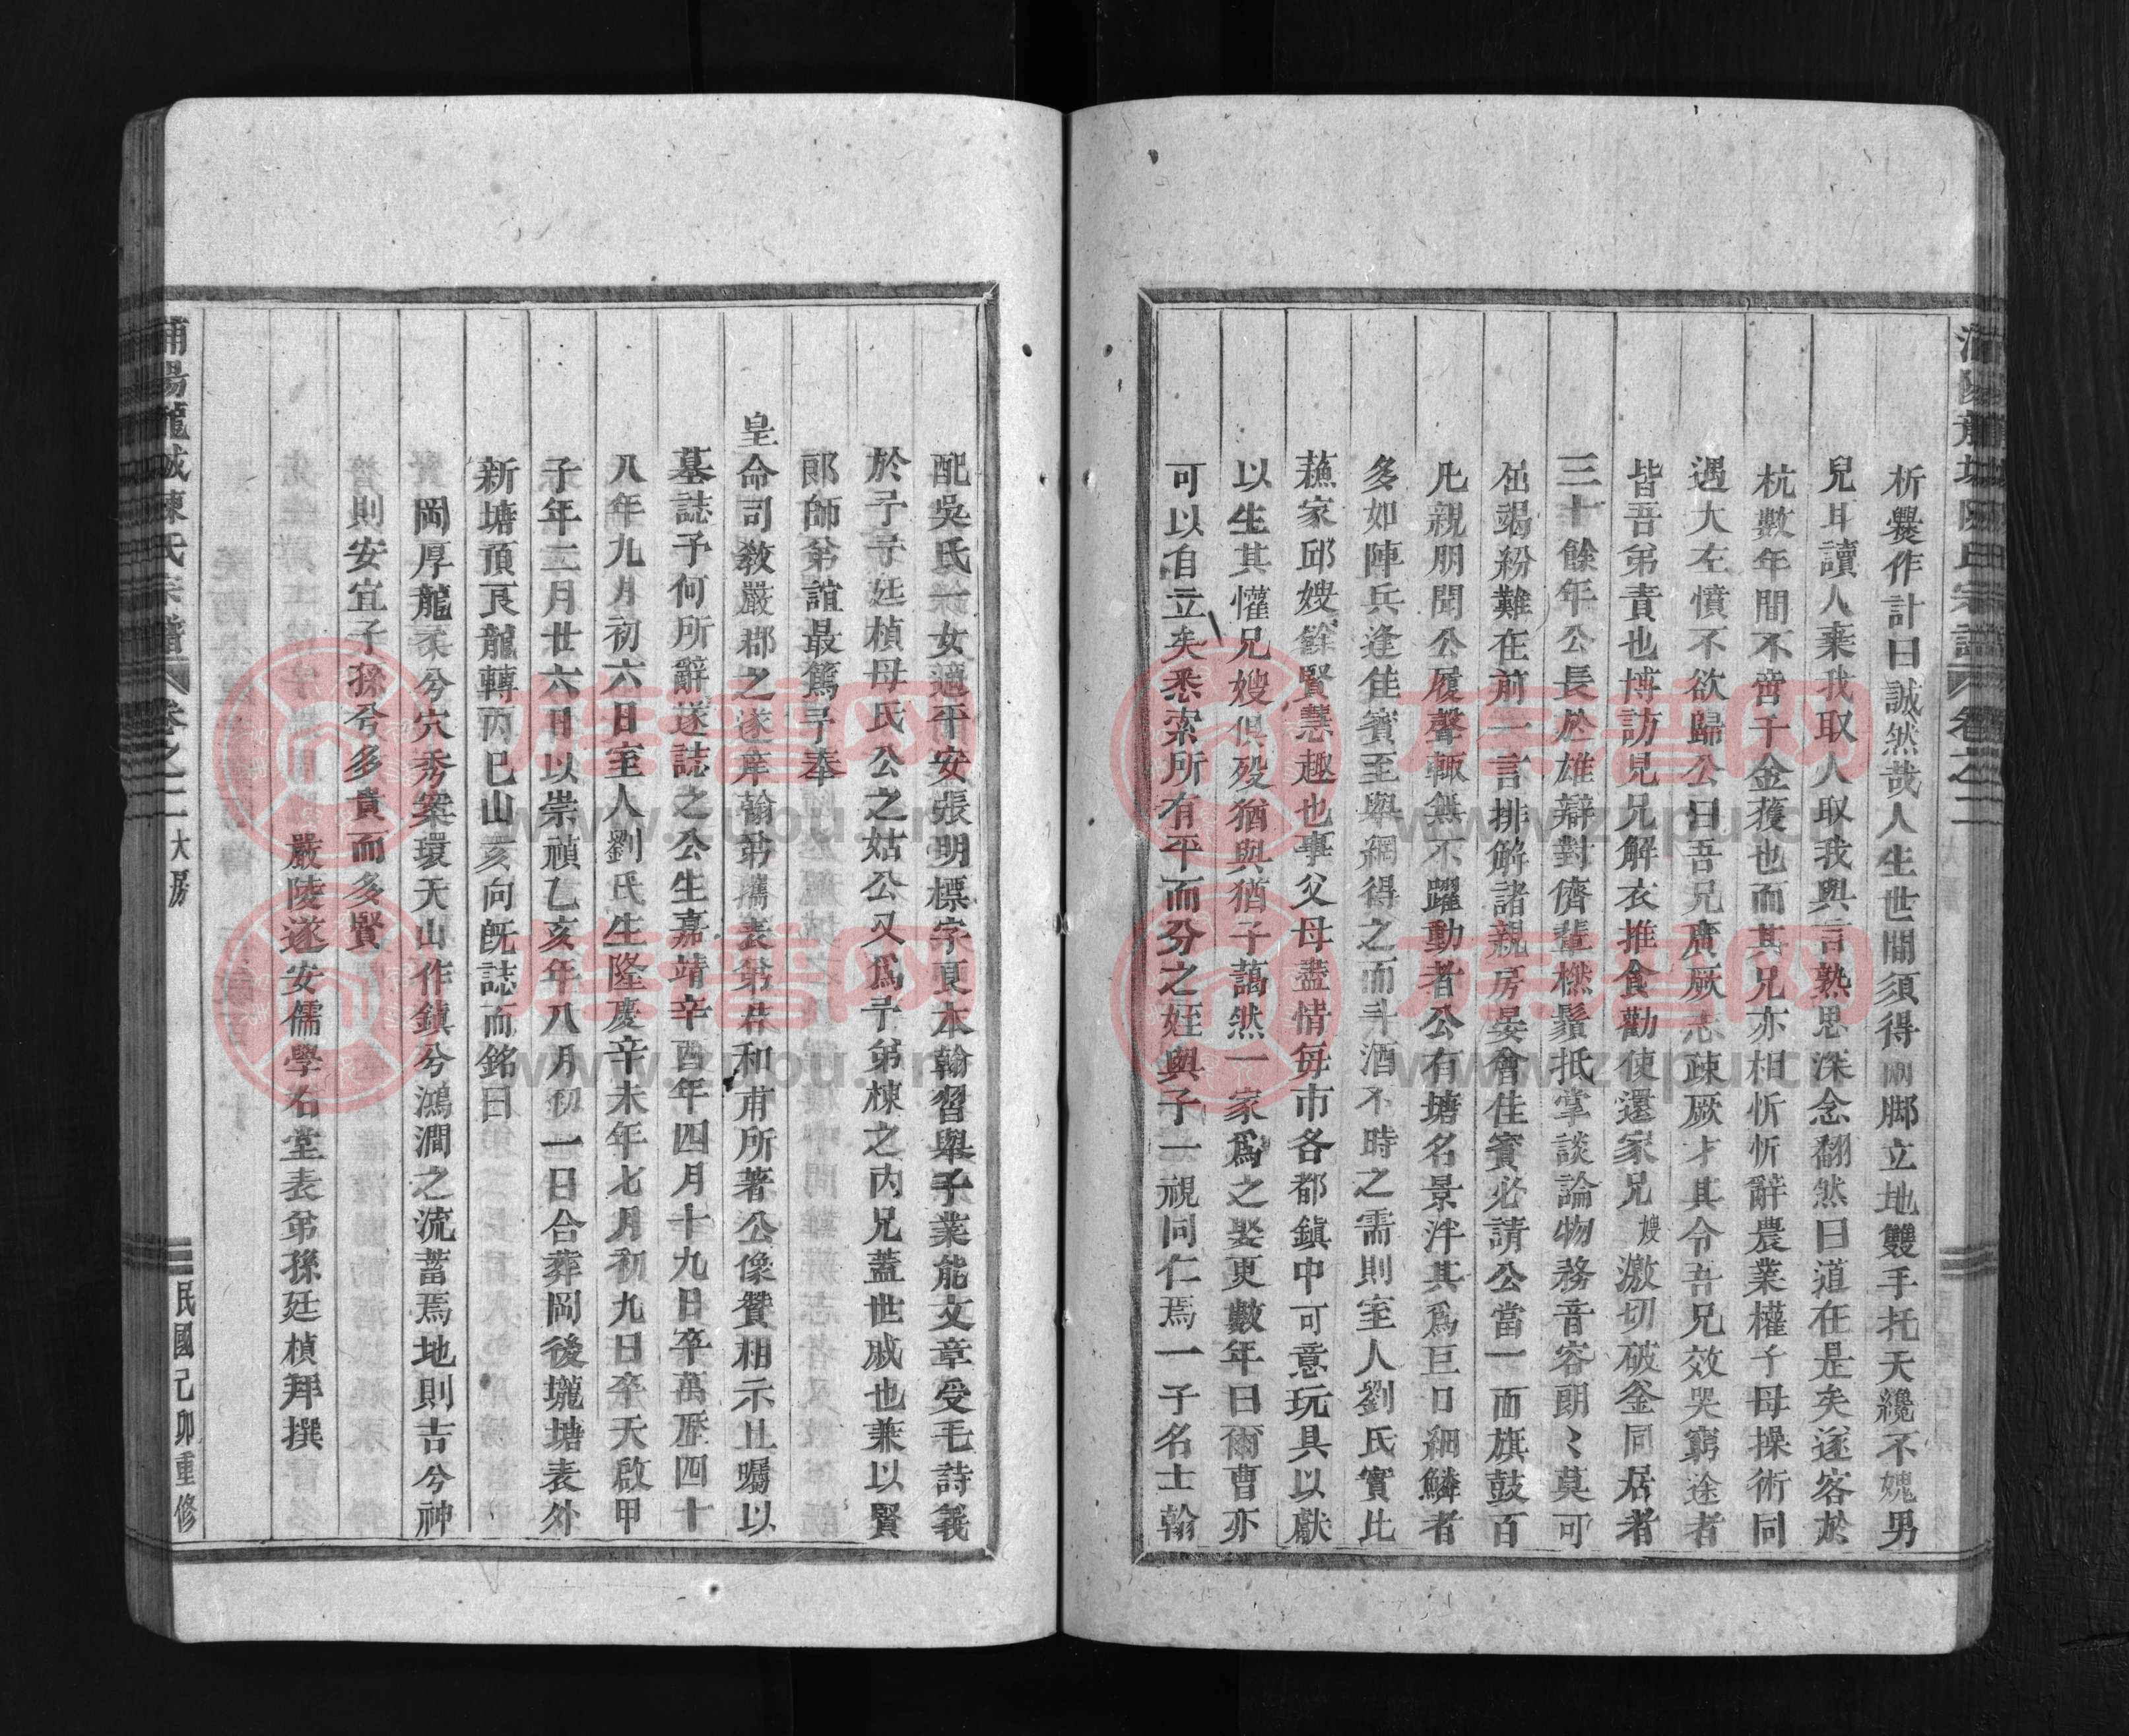 析爨作計曰誠然哉人生世間須得兩脚立地雙手托天纔不媿男
兒耳讀人棄我取人取我與言熟思深念翻然曰道在是矣遂客於
杭數年間不啻千金獲也而其兄亦相忻忻辭農業權子母操術同
遇大左憤不欲歸公曰吾兄廣厥志疎厥才其令吾兄效哭窮途者
皆吾弟責也博訪見兄解衣推食勸使還家兄嫂激切破釜同居者
三十餘年公長於雄辯對儕輩撚鬚抵掌談論物務音容朗〻莫可
屈竭紛難在前一言排解諸親房宴會佳賓必請公當一而旗鼓百
凡親朋聞公履聲輒無不躍動者公有塘名景泮其爲巨口細鱗者
多如陣兵逢佳賓至舉網得之而斗酒不時之需則室人劉氏實比
蘓家邱嫂雜賢慧趣也事父母盡情每市各都鎮中可意玩具以獻
以生其懽兄嫂俱歿猶與猶子藹然一家爲之娶更數年曰爾曹亦
可以自立矣悉索所有平而分之姪與子一視同仁焉一子名士翰
配吳氏一女適平安張明標字夏本翰習舉子業能文章受毛詩義
於予予廷楨母氏公之姑公又爲予弟棟之內兄蓋世戚也兼以賢
郎師弟誼最篤予奉
皇命司教嚴郡之遂庠翰弟攜表弟井和甫所著公像贊相示且囑以
墓誌予何所辭遂誌之公生嘉靖辛酉年四月十九日卒萬歷四十
八年九月初六日室人劉氏生隆慶辛未年七月初九日卒天啟甲
子年二月廿六日以崇禎乙亥年八月初一日合葬岡後壠塘表外
新塘頂艮龍轉丙巳山亥向既誌而銘曰
岡厚龍柔兮穴秀案環天山作鎮兮鴻澗之流蓄焉地則吉兮神
則安宜子孫兮多貴而多賢
嚴陵遂安儒學右堂表弟孫廷楨拜撰
浦陽龍城陳氏宗譜 卷之二 大房
民國己卯重修